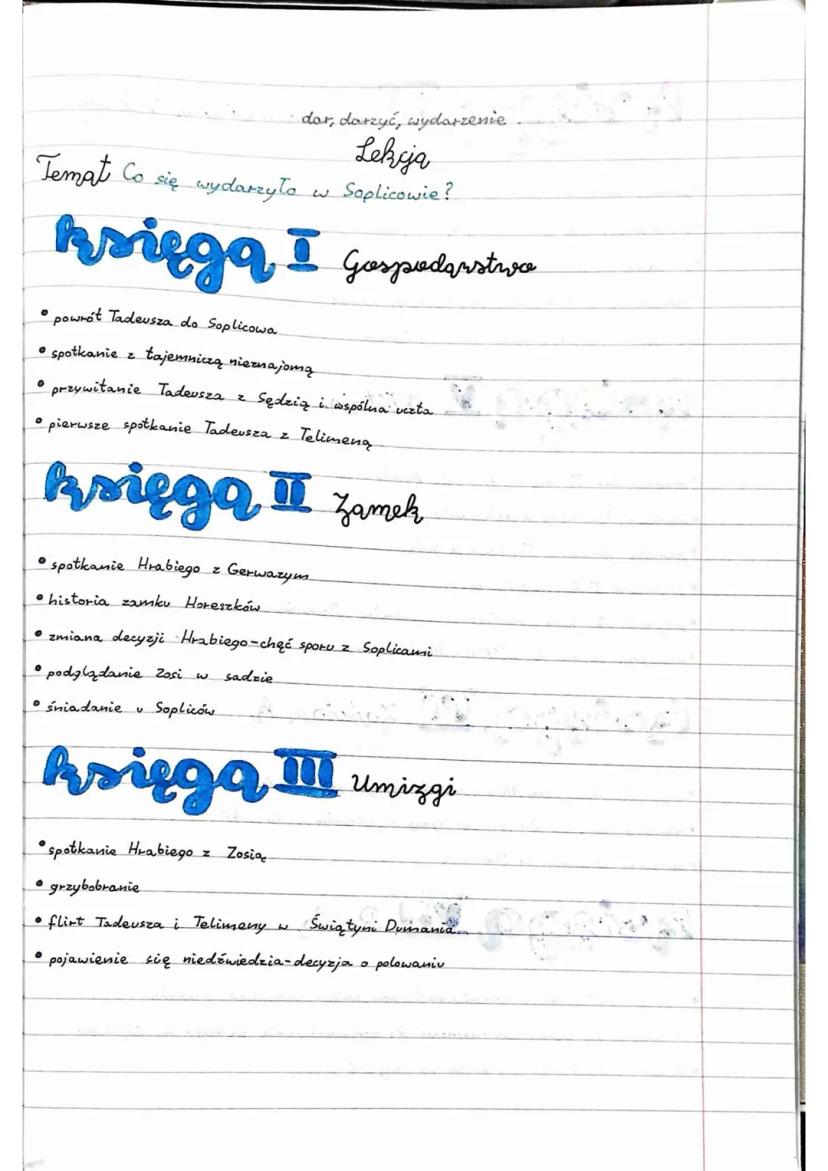 dar, darzyć, wydarzenie.
Lekcja
Temat Co się wydarzyło w Soplicowie?
księga I Gospodarstwo
• powrót Tadeusza do Soplicowa
• spotkanie z tajemniczą nieznajomą
• przywitanie Tadeusza z Sędzią i wspólna uczta
• pierwsze spotkanie Tadeusza z Telimeną
księga II Zamek
• spotkanie Hrabiego z Gerwazym
• historia zamku Horeszków
• zmiana decyzji Hrabiego-chęć sporu z Soplicami
• podglądanie Zosi w sadzie
• śniadanie u Sopliców
księga III Umizgi
• spotkanie Hrabiego z Zosią
• grzybobranie
• flirt Tadeusza i Telimeny w Świątyni Dumania
• pojawienie się niedźwiedzia-decyzja o polowaniu